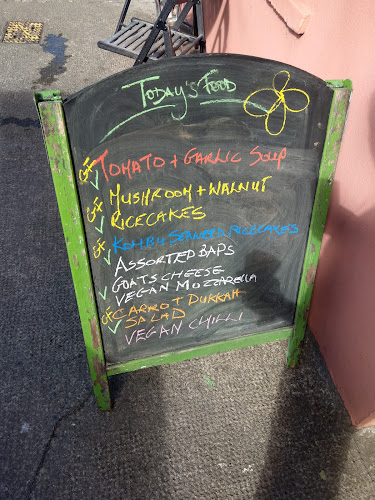 TODAY'S FOOD
GF TOMATO + GARLIC SOUP
GF MUSHROOM + WALNUT
RICECAKES
GF KOHBU SEAWEED RICECAKES
ASSORTED BAPS
GOATS CHEESE
VEGAN MOZZARELLA
GF CARROT DUKKAH
SALAD
VEGAN CHILLI